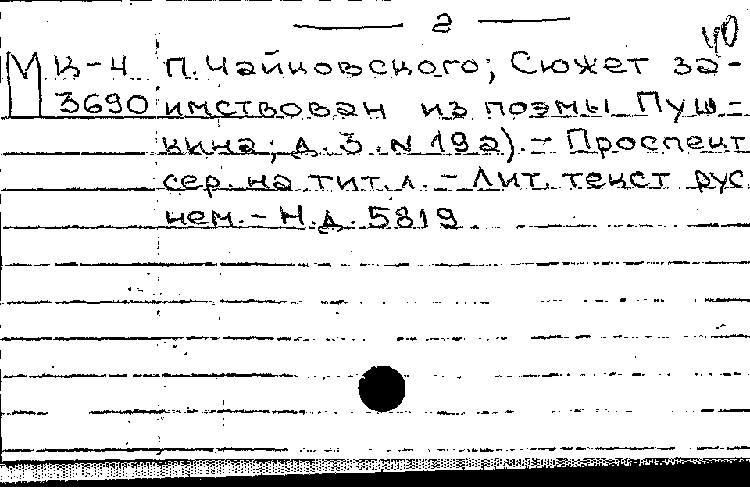 — 2 —
40
М К-4 П. Чайковского; Сюжет за-
3690 имствован из поэмы Пуш-
кина; д. 3. N 19а). – Проспект
сер. на тит. л. – Лит. текст рус
нем. – Н.д. 5819